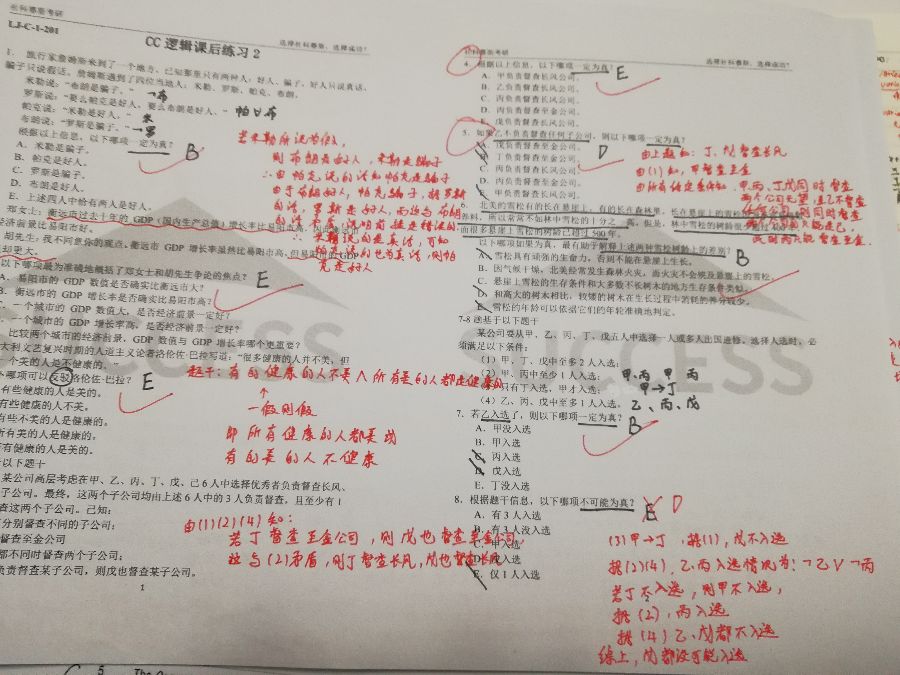 社科赛斯考研
LJ-C-1-201
选择社科赛斯，选择成功！
CC 逻辑课后练习 2
1. 旅行家詹姆斯来到了一个地方，已知那里只有两种人：好人、骗子，好人只说真话，
骗子只说假话。詹姆斯遇到了四位当地人：米勒、罗斯、帕克、布朗。
米勒说：“布朗是骗子。” ¬布
罗斯说：“要么帕克是好人，要么布朗是好人。” 帕∀布
帕克说：“米勒是好人。” 米
布朗说：“罗斯是骗子。” ¬罗
根据以上信息，以下哪项一定为真？
B
A. 米勒是骗子。
B. 帕克是好人。
C. 罗斯是骗子。
D. 布朗是好人。
E. 上述四人中恰有两人是好人。
若米勒所说为假，
则布朗是好人，米斯是骗子
∴由帕克说的话知帕克是骗子
由于布朗好人，帕克骗子，据罗斯
的话，罗斯是好人，而这与布朗
的话
∴米勒说的是真话，可知
帕克说的也为真话，则帕
克是好人
郑女士：衡远市过去十年的 GDP（国内生产总值）增长率比易阳市高，因此衡远市的
经济前景比易阳市好。
胡先生：我不同意你的观点，衡远市 GDP 增长率虽然比易阳市高，但易阳市的 GDP
却更大。
以下哪项最为准确地概括了郑女士和胡先生争论的焦点？
E
A. 易阳市的 GDP 数值是否确实比衡远市大？
B. 衡远市的 GDP 增长率是否确实比易阳市高？
C. 一个城市的 GDP 数值大，是否经济前景一定好？
一个城市的 GDP 增长率高，是否经济前景一定好？
比较两个城市的经济前景，GDP 数值与 GDP 增长率哪个更重要？
大利文艺复兴时期的人道主义论者洛伦佐·巴拉写道：“很多健康的人并不美，但
一个美的人是不健康的。”
哪项可以反驳洛伦佐·巴拉？ E
有些健康的人是美的。
有些健康的人不美。
有些不美的人是健康的。
所有美的人是健康的。
所有健康的人是美的。
题干：有的健康的人不美∧所有美的人都是健康的
↑
一假则假
即所有健康的人都美或
有的美的人不健康
以下题干
某公司高层考虑在甲、乙、丙、丁、戊、己 6 人中选择优秀者负责督查长风、
子公司。最终，这两个子公司均由上述 6 人中的 3 人负责督查，且至少有 1
查这两个子公司。已知：
分别督查不同的子公司；
督查至金公司
都不同时督查两个子公司；
负责督查某子公司，则戊也督查某子公司。
由(1)(2)(4)知：
若丁督查至金公司，则戊也督查至金公司，
这与(2)矛盾，则丁督查长风，戊也督查长风
1
社科赛斯考研
选择社科赛斯，选择成功！
4. 根据以上信息，以下哪项一定为真？
E
A. 甲负责督查长风公司。
B. 乙负责督查长风公司。
C. 丙负责督查长风公司。
D. 丙负责督查至金公司。
E. 戊负责督查长风公司。
5. 如果乙不负责督查任何子公司，则以下哪项一定为真？
D
A. 戊负责督查至金公司。
B. 丁负责督查至金公司。
C. 丙负责督查长风公司。
D. 丙负责督查至金公司。
E. 甲负责督查长风公司。
由上题知：丁、戊督查长风
由(1)知，甲督查至金
6. 北美的雪松有的长在悬崖上，有的长在森林里。
而很多悬崖上的雪松的树龄已超过 500 年。
以下哪项如果为真，最有助于解释上述两种雪松树龄上的差别？
B
A. 雪松具有顽强的生命力，否则不能在悬崖上生长。
B. 因气候干燥，北美经常发生森林火灾，而火灾不会蔓及悬崖上的雪松。
C. 悬崖上雪松的生存条件和大多数不长树木的地方生存条件类似。
D. 和高大的树木相比，较矮的树木在生长过程中消耗的养分较少。
E. 雪松的年龄可以依据它们的年轮准确地判定。
7-8 题基于以下题干
某公司要从甲、乙、丙、丁、戊五人中选择一人或多人出国进修。选择人选时，必
须满足以下条件：
（1）甲、丁、戊中至多 2 人入选；
（2）甲、丙中至少 1 人入选；
甲¬丙 丙¬甲 甲丙
（3）只有丁入选，甲才入选；
甲→丁
（4）乙、丙、戊中至多 1 人入选。
乙、丙、戊
7. 若乙入选了，则以下哪项一定为真？
B
A. 甲没入选
B. 甲入选
C. 丙入选
D. 戊入选
E. 丁没入选
8. 根据题干信息，以下哪项不可能为真？
E D
A. 有 3 人入选
B. 有 3 人没入选
C. 甲入选
D. 戊入选
E. 仅 1 人入选
(3)甲→丁，据(1)，戊不入选
据(2)(4)，乙、丙入选情况为：¬乙∨¬丙
若丁不入选，则甲不入选，
据(2)，丙入选
据(4)乙、戊都不入选
综上，戊都没可能入选
SUCCESS